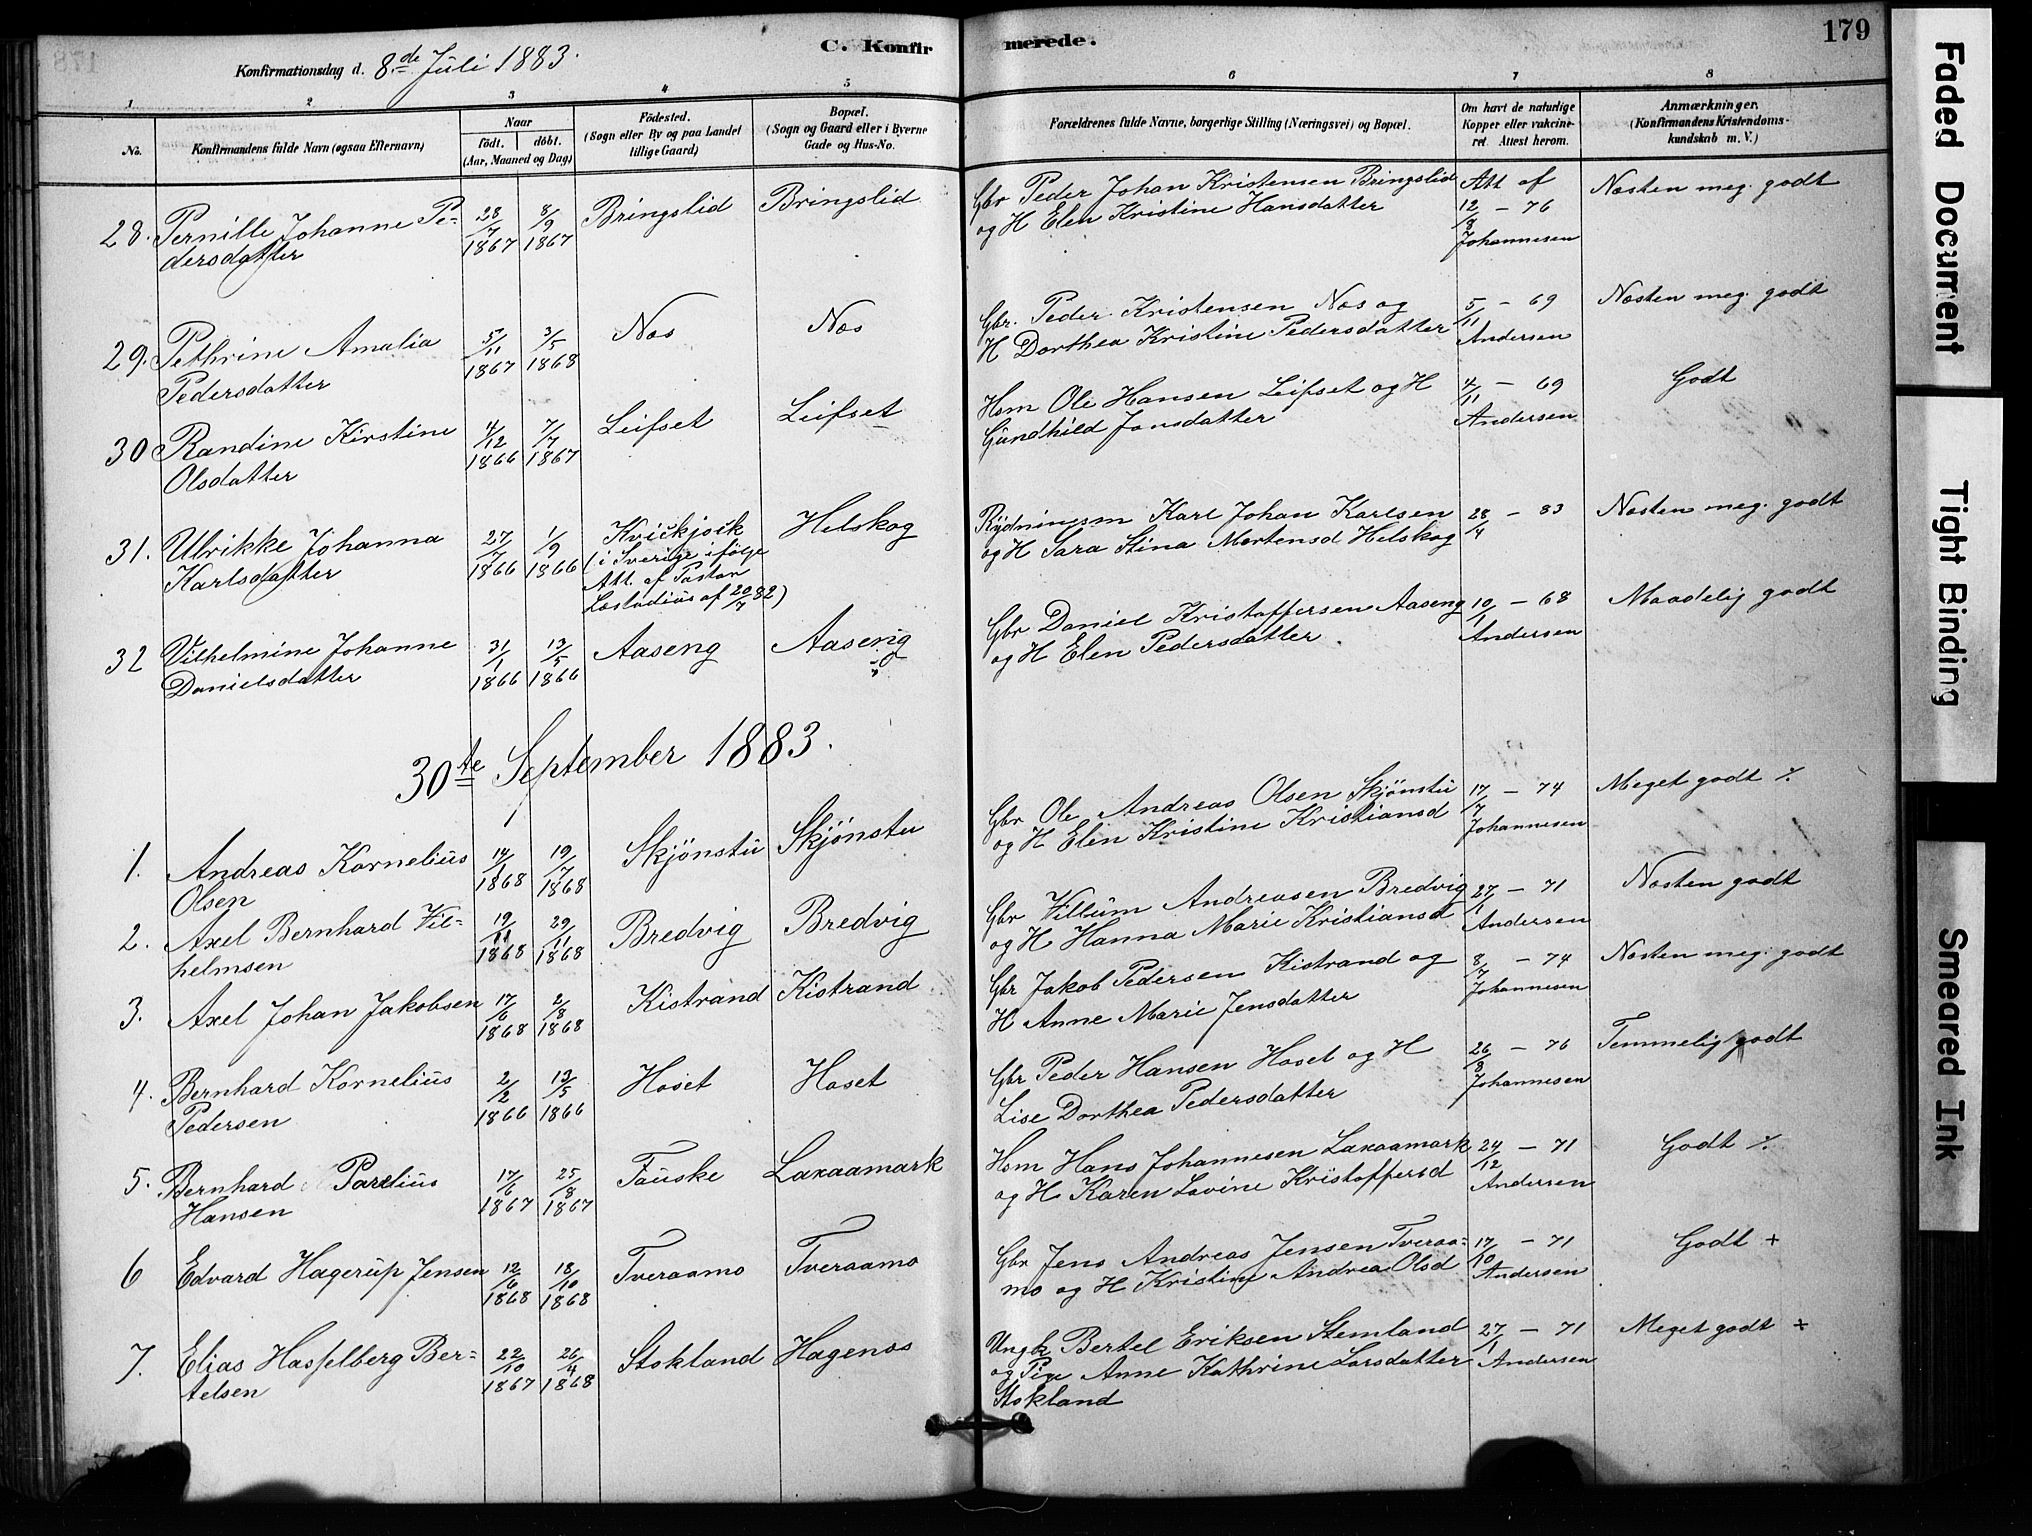 179
C. Konfirmerede.
Konfirmationsdag d. 8de Juli 1883.
1 2 3 4 5 6 7 8
No.
Konfirmandens fulde Navn (ogsaa Efternavn)
Naar
födt. döbt.
(Aar, Maaned og Dag)
Födested.
(Sogn eller By og paa Landet
tillige Gaard)
Bopæl.
(Sogn og Gaard eller i Byerne
Gade og Hus-No.
Forældrenes fulde Navne, borgerlige Stilling (Næringsvei) og Bopæl.
Om havt de naturlige
Kopper eller vakcine-
ret. Attest herom.
Anmærkninger.
(Konfirmandens Kristendoms-
kundskab m. V.)
28. Pernille Johanne Pe-
dersdatter
28/7 1867
8/9 1867
Bringslid
Bringslid
Gbr Peder Johan Kristensen Bringslid
og H Elen Kristine Hansdatter
Att af
12/8 – 76
Johannesen
Næsten meg. godt
29. Pethrine Amalia
Pedersdatter
5/11 1867
3/5 1868
Næs
Næs
Gbr. Peder Kristensen Næs og
H Dorthea Kristine Pedersdatter
5/11 – 69
Andersen
Næsten meg. godt
30 Randine Kirstine
Olsdatter
4/12 1866
7/7 1867
Leifset
Leifset
Hsm Ole Hansen Leifset og H
Gundhild Jonsdatter
4/11 – 69
Andersen
Godt
31. Ulrikke Johanna
Karlsdatter
27/7 1866
1/9 1866
Kvickjock
(i Sverige ifølge
Att. af Pastor
Læstadius af 20/7 82)
Helskog
Rydningsm Karl Johan Karlsen
og H Sara Stina Mortensd Helskog
28/4 – 83
Næsten meg. godt
32 Vilhelmine Johanne
Danielsdatter
31/1 1866
13/5 1866
Aaseng
Aaseng
Gbr Daniel Kristoffersen Aaseng
og H Elen Pedersdatter.
10/1 – 68
Andersen
Maadelig godt
30te September 1883.
1. Andreas Kornelius
Olsen
14/1 1868
19/7 1868
Skjønstu
Skjønstu
Gbr Ole Andreas Olsen Skjønstu
og H Elen Kristine Kristiansd
17/7 – 74
Johannesen
Meget godt
2. Axel Bernhard Vil-
helmsen
19/11 1868
29/11 1868
Bredvig
Bredvig
Gbr Villum Andreasen Bredvig
og H Hanna Marie Kristiansd
27/1 – 71
Andersen
Næsten godt
3. Axel Johan Jakobsen
17/6 1868
2/8 1868
Kistrand
Kistrand
Gbr Jakob Pedersen Kistrand og
H Anne Marie Jensdatter
8/7 – 74
Johannesen
Næsten meg. godt
4. Bernhard Kornelius
Pedersen
2/2 1866
13/5 1866
Hoset
Hoset
Gbr Peder Hansen Hoset og H
Lise Dorthea Pedersdatter
26/8 – 76
Johannesen
Temmelig godt
5. Bernhard Parelius
Hansen
17/6 1867
25/8 1867
Fauske
Laxaamark
Hsm Hans Johannesen Laxaamark
og H Karen Lovine Kristoffersd
24/12 – 71
Andersen
Godt
6 Edvard Hagerup Jensen
12/6 1868
18/10 1868
Tveraamo
Tveraamo
Gbr Jens Andreas Jensen Tveraa-
mo og H Kristine Andrea Olsd
17/10 – 71
Andersen
Godt +
7. Elias Hasselberg Ber-
telsen
22/10 1867
26/4 1868
Stokland
Hagenæs
Ungk Bertel Eriksen Stemland
og Pige Anne Kathrine Larsdatter
Stokland
27/1 – 71
Andersen
Meget godt +
Faded Document
Tight Binding
Smeared Ink